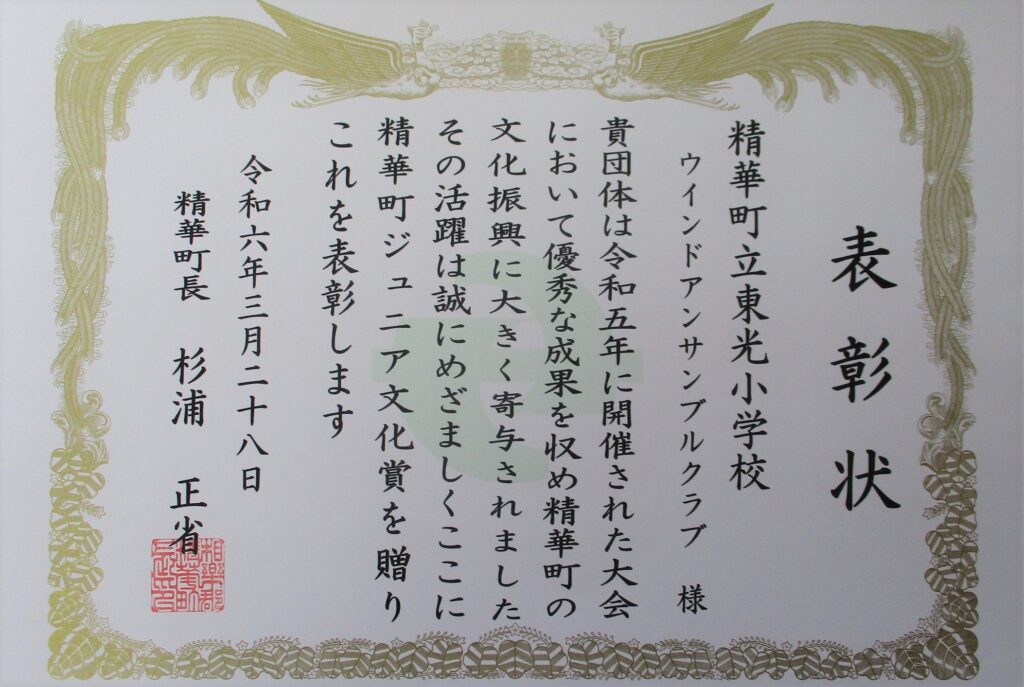 表彰状
精華町立東光小学校
ウインドアンサンブルクラブ 様
貴団体は令和五年に開催された大会
において優秀な成果を収め精華町の
文化振興に大きく寄与されました
その活躍は誠にめざましくここに
精華町ジュニア文化賞を贈り
これを表彰します
令和六年三月二十八日
精華町長 杉浦 正省